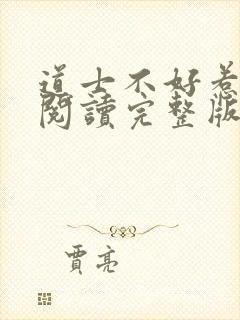 道士不好惹
閱讀完整版
賈亮